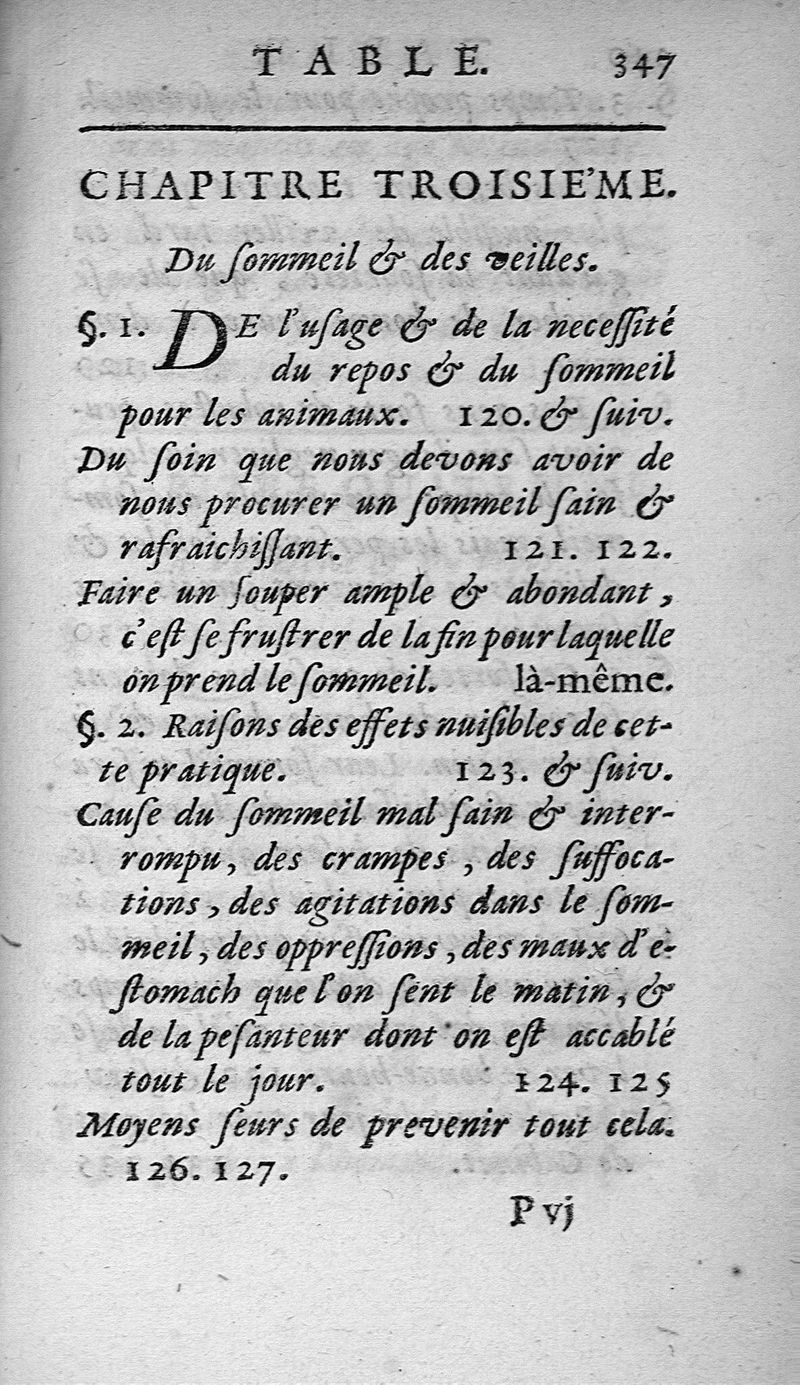 TABLE. 347
CHAPITRE TROISIE'ME.
Du ſommeil & des veilles.
§. 1. DE l'uſage & de la neceſſité
du repos & du ſommeil
pour les animaux. 120. & ſuiv.
Du ſoin que nous devons avoir de
nous procurer un ſommeil ſain &
rafraichiſſant. 121. 122.
Faire un ſouper ample & abondant,
c'eſt ſe fruſtrer de la fin pour laquelle
on prend le ſommeil. là-même.
§. 2. Raiſons des effets nuiſibles de cet-
te pratique. 123. & ſuiv.
Cauſe du ſommeil mal ſain & inter-
rompu, des crampes, des ſuffoca-
tions, des agitations dans le ſom-
meil, des oppreſſions, des maux d'e-
ſtomach que l'on ſent le matin, &
de la peſanteur dont on eſt accablé
tout le jour. 124. 125
Moyens ſeurs de prevenir tout cela.
126. 127.
P vj